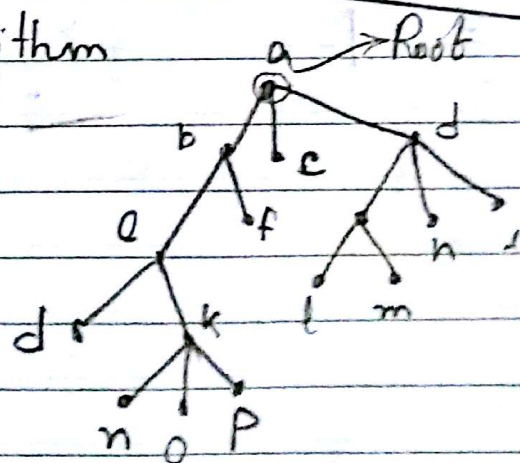 ithm
a → Root
b c d
e f h
l m
d k
n o p